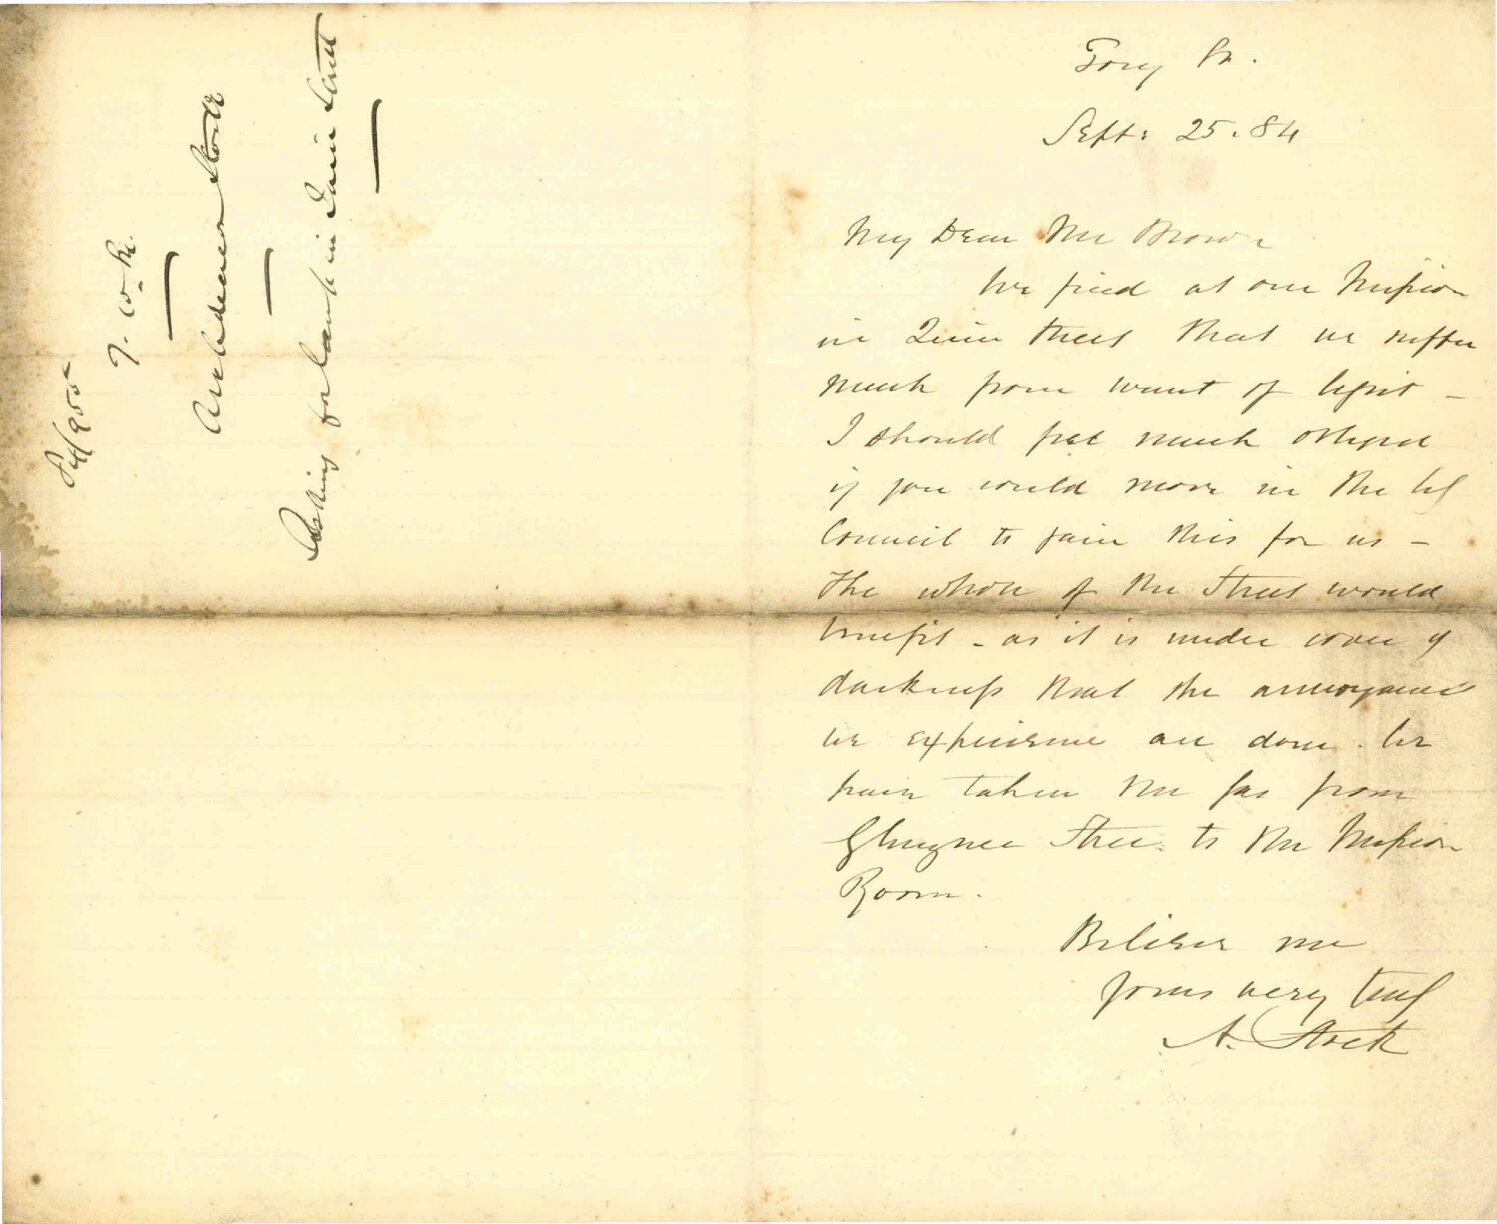 84/955
I. W. Ke.
Archdeacon Stock
Asking for lamp in Quin Street
Tory St.
Sept: 25. 84
My Dear Mr Brown
We find at our Mission
in Quin Street that we suffer
much from want of light -
I should feel much obliged
if you would move in the
Council to gain this for us -
The whole of the Street would
benefit - as it is under cover of
darkness that the annoyances
we experience are done. We
have taken the gas from
Ghuznee Street to the Mission
Room.
Believe me
Yours very truly
A. Stock